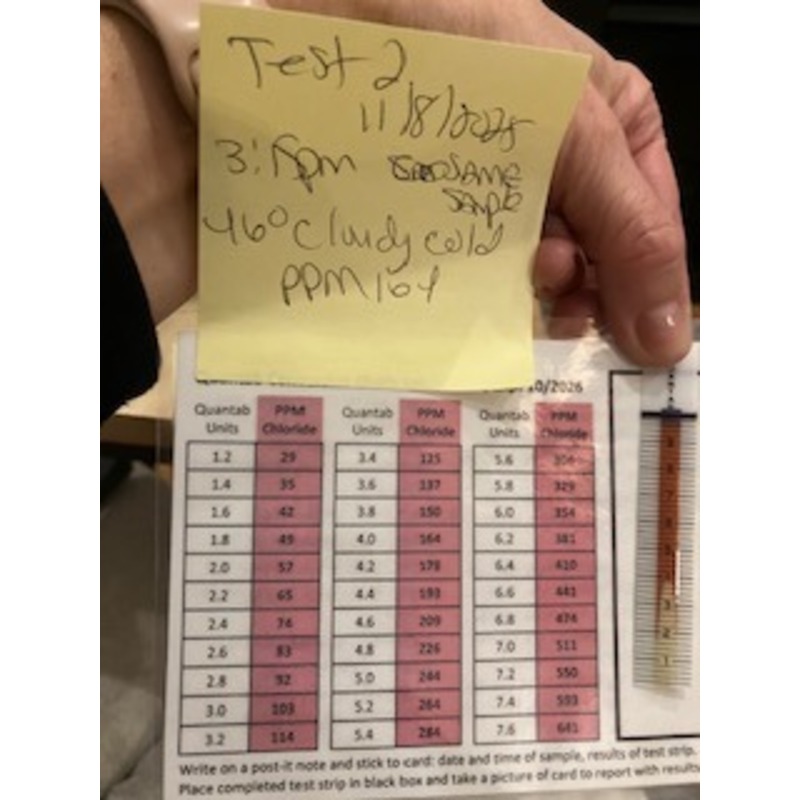 Test 2
11/8/2025
3:15pm SAME
Sample
46° Cloudy cold
PPM 164
10/2026
Quantab Units PPM Chloride Quantab Units PPM Chloride Quantab Units PPM Chloride
1.2 29 3.4 125 5.6 304
1.4 35 3.6 137 5.8 329
1.6 42 3.8 150 6.0 354
1.8 49 4.0 164 6.2 381
2.0 57 4.2 178 6.4 410
2.2 65 4.4 193 6.6 441
2.4 74 4.6 209 6.8 474
2.6 83 4.8 226 7.0 511
2.8 92 5.0 244 7.2 550
3.0 103 5.2 264 7.4 593
3.2 114 5.4 284 7.6 641
3
2
1
Write on a post-it note and stick to card: date and time of sample, results of test strip.
Place completed test strip in black box and take a picture of card to report with results